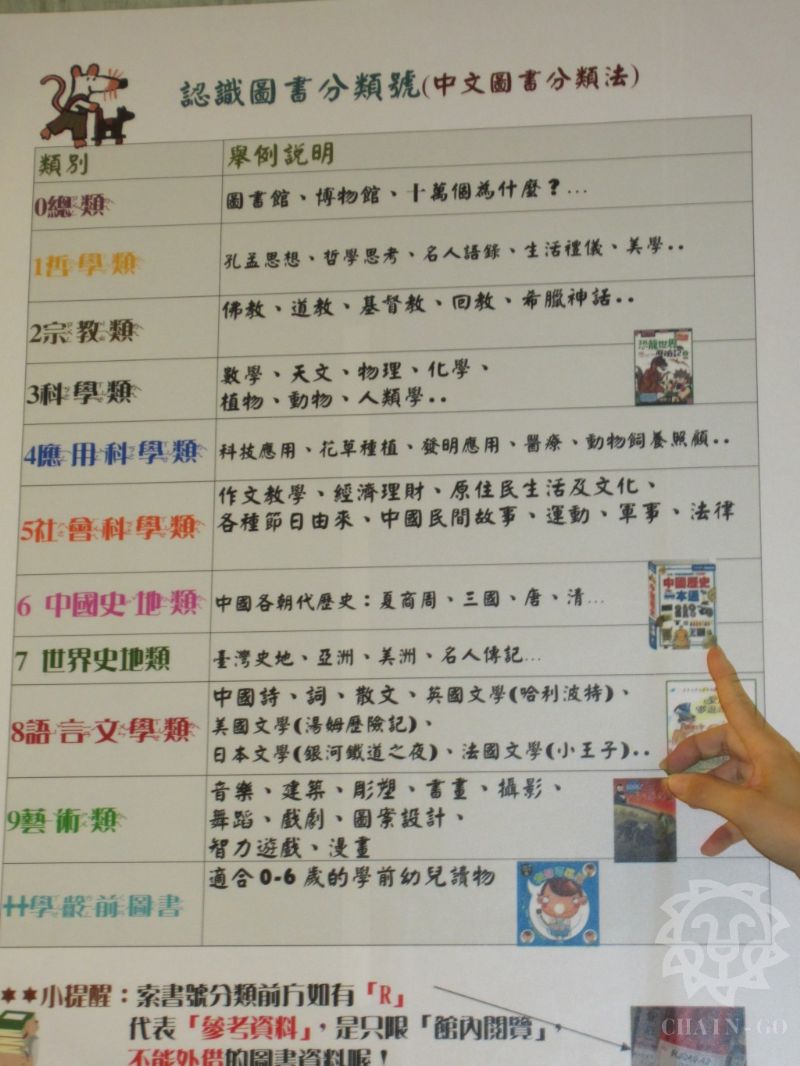 認識圖書分類號(中文圖書分類法)
類別 舉例說明
0總類 圖書館、博物館、十萬個為什麼？...
1哲學類 孔孟思想、哲學思考、名人語錄、生活禮儀、美學..
2宗教類 佛教、道教、基督教、回教、希臘神話..
3科學類 數學、天文、物理、化學、
植物、動物、人類學..
恐龍世界
歷險記
4應用科學類 科技應用、花草種植、發明應用、醫療、動物飼養照顧..
5社會科學類 作文教學、經濟理財、原住民生活及文化、
各種節日由來、中國民間故事、運動、軍事、法律
6 中國史地類 中國各朝代歷史：夏商周、三國、唐、清...
中國歷史
本通
7 世界史地類 臺灣史地、亞洲、美洲、名人傳記...
8語言文學類 中國詩、詞、散文、英國文學(哈利波特)、
美國文學(湯姆歷險記)、
日本文學(銀河鐵道之夜)、法國文學(小王子)..
9藝術類 音樂、建築、彫塑、書畫、攝影、
舞蹈、戲劇、圖案設計、
智力遊戲、漫畫
廿學齡前圖書 適合0-6歲的學前幼兒讀物
★★小提醒：索書號分類前方如有「R」
代表「參考資料」，是只限「館內閱覽」，
不能外借的圖書資料喔！
CHAIN-GO